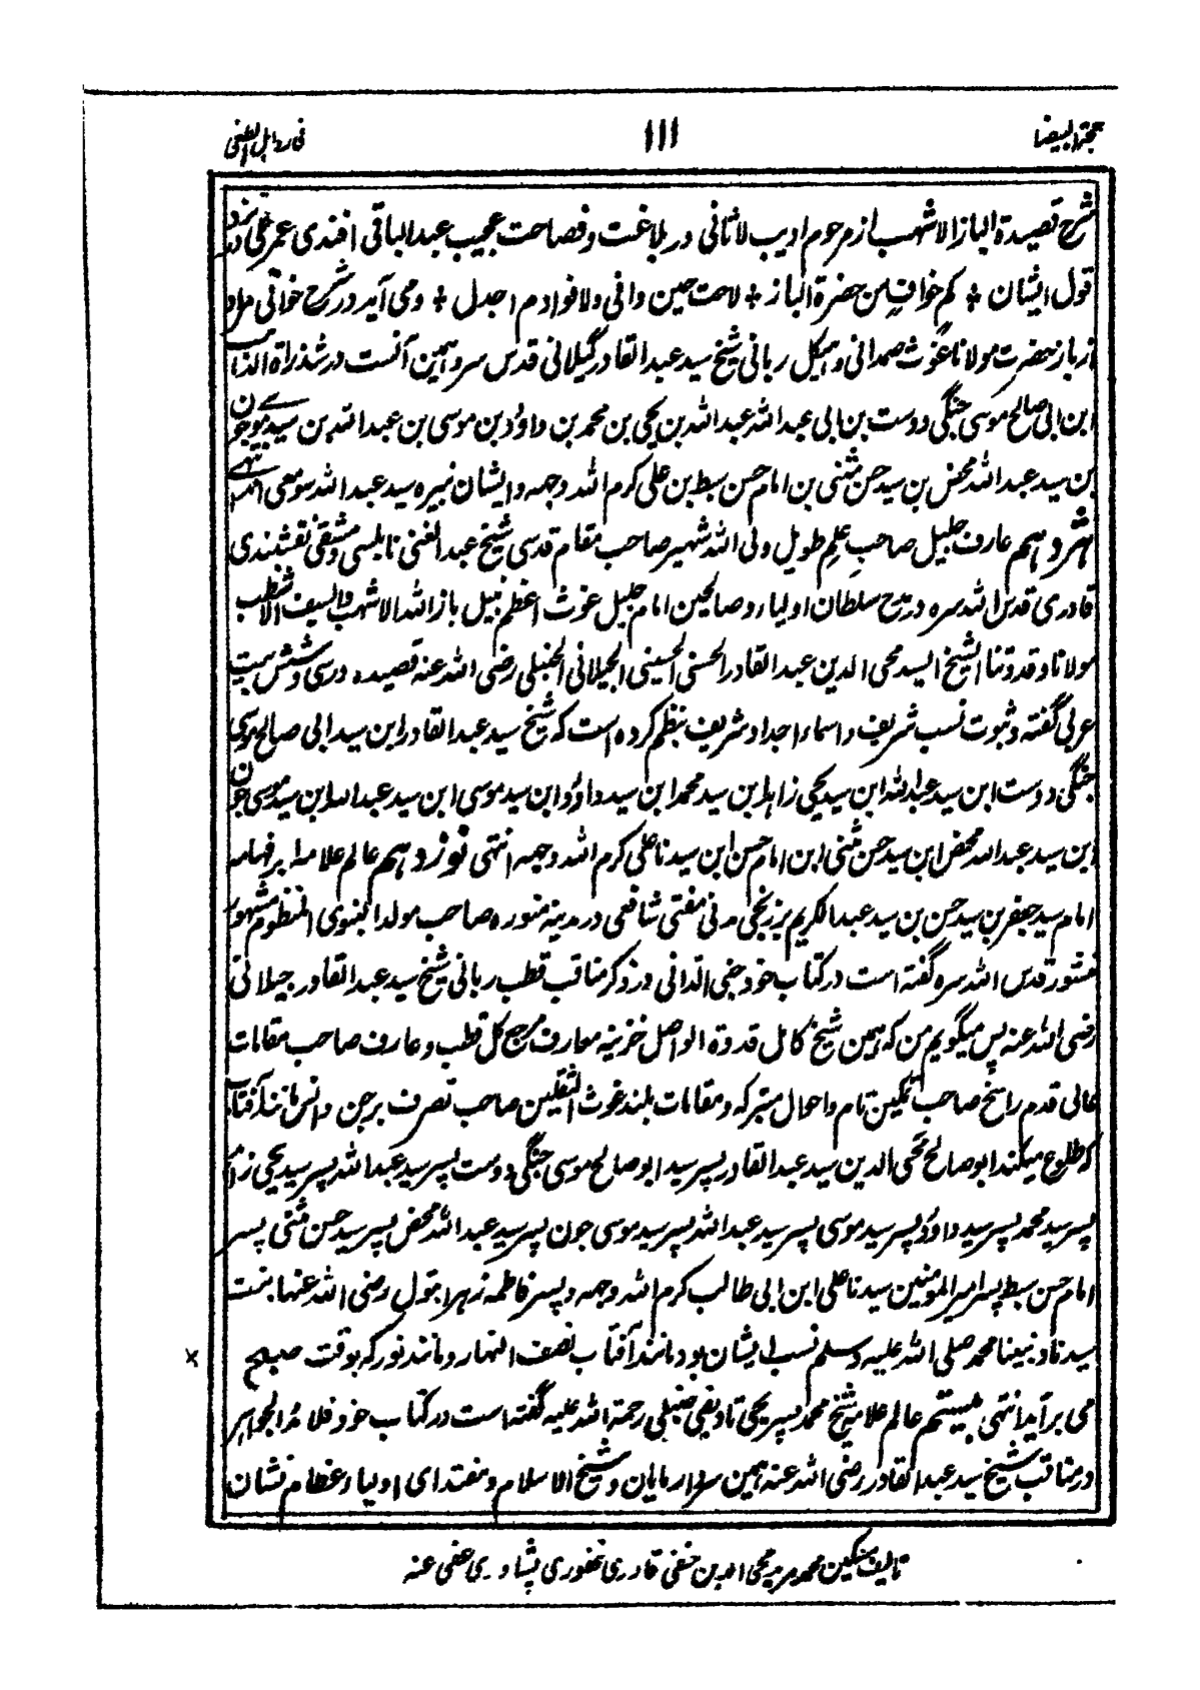 حجة البیضا ۱۱۱ فی رد اہل الطغی
شرح قصیدة الباز الاشہب از مرحوم ادیب لاثانی در بلاغت و فصاحت عجیب عبدالباقی افندی عمری نزد
قول ایشان * کم خواف من حضرة الباز * لاحت حین وافی ولا قوادم اجدل * ومی آید در شرح خوافی مراد
از باز حضرت مولانا غوث صمدانی و ہیکل ربانی شیخ سید عبدالقادر گیلانی قدس سرہ ہمین آنست در شذراة الذہب
ابن ابی صالح موسی جنگی دوست بن ابی عبداللہ عبداللہ بن یحی بن محمد بن داود بن موسی بن عبداللہ بن سید موسے جون
بن سید عبداللہ محض بن سید حسن مثنی بن امام حسن سبط بن علی کرم اللہ وجہہ و ایشان نبیرہ سید عبداللہ صومعی اند انتہے
ہژدہم عارف جلیل صاحب علم طویل ولی اللہ شہیر صاحب مقام قدسی شیخ عبدالغنی نابلسی دمشقی نقشبندی
قادری قدس اللہ سرہ در مدح سلطان اولیاء و صالحین امام جلیل غوث اعظم نبیل باز اللہ الاشہب والسیف الاشطب
مولانا و قدوتنا الشیخ السید محی الدین عبدالقادر الحسنی الحسینی الجیلانی الحنبلی رضی اللہ عنہ قصیدہ در سی و شش بیت
عربی گفتہ و ثبوت نسب شریف و اسماء اجداد شریف بنظم کردہ است کہ شیخ سید عبدالقادر ابن سید ابی صالح موسی
جنگی دوست ابن سید عبداللہ ابن سید یحی زاہد ابن سید محمد ابن سید داود ابن سید موسی ابن سید عبداللہ ابن سید موسی جون
ابن سید عبداللہ محض ابن سید حسن مثنی ابن امام حسن ابن سیدنا علی کرم اللہ وجہہ انتہی نوزدہم عالم علامہ ابر فہامہ
امام سید جعفر بن سید حسن بن سید عبدالکریم برزنجی مدنی مفتی شافعی در مدینہ منورہ صاحب مولد النبوی المنظوم مشہور
منثور قدس اللہ سرہ گفتہ است در کتاب خود جنی الدانی در ذکر مناقب قطب ربانی شیخ سید عبدالقادر جیلانی
رضی اللہ عنہ پس میگویم من کہ ہمین شیخ کامل قدوة الواصل خزینہ معارف مرجع کل قطب و عارف صاحب مقامات
عالی قدم راسخ صاحب تمکین تام و احوال متبرکہ و مقامات بلند غوث الثقلین صاحب تصرف بر جن و انس مانند آفتاب
کہ طلوع میکند ابو صالح محی الدین سید عبدالقادر پسر سید ابو صالح موسی جنگی دوست پسر سید عبداللہ پسر سید یحی زاہد
پسر سید محمد پسر سید داود پسر سید موسی پسر سید عبداللہ پسر سید موسی جون پسر سید عبداللہ محض پسر سید حسن مثنی پسر
امام حسن سبط پسر امیر المومنین سیدنا علی ابن ابی طالب کرم اللہ وجہہ و پسر فاطمہ زہرا بتول رضی اللہ عنہا بنت
سیدنا و نبینا محمد صلی اللہ علیہ وسلم نسب ایشان بود مانند آفتاب نصف النہار و مانند نور کہ بوقت صبح
می برآید انتہی بیستم عالم علامہ شیخ محمد پسر یحی تادفی حنبلی رحمة اللہ علیہ گفتہ است در کتاب خود قلائد الجواہر
در مناقب شیخ سید عبدالقادر رضی اللہ عنہ ہمین سردار مایان و شیخ الاسلام و مقتدای اولیاء عظام نشان
تالیف مسکین محمد مرید محی الدین حنفی قادری غفوری پشاوری عفی عنہ